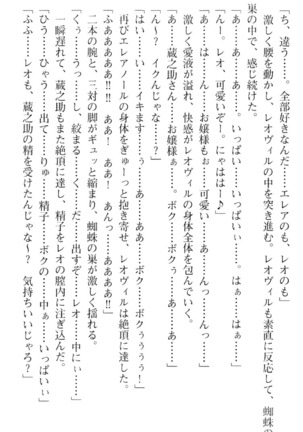 「ち、違う……。全部好きなんだ……エレアのも、レオのも」
激しく腰を動かし、レオヴィルの中を突き進む。レオヴィルも素直に反応して、蜘蛛の
巣の中で、感じ続けた。
「あ……ああ……あ……いっぱい……いっぱいぃ……。はぁ……はぁ……」
「ん～。レオ、可愛いぞー。にゃははー♪」
「あ……は……ん……お嬢様も……可愛い……あ……んっ……んっ」
激しく愛液が溢れ、快感がレオヴィルの身体全体を包んでいく。
「あ……あ……蔵之助さん……お嬢様ぁ……。ボク……ボクぅ……あ……」
「ん～？　イクんじゃな……？」
「はい……い……イキます……ぅ……あ……ああ……ボク……ボクぅぅぅぅ！」
再びエレアノールの身体をぎゅーっと抱き寄せ、レオヴィルは絶頂に達した。
「ふあぁぁぁぁ!!　ああ！　あぁ！　あんっ……あぁぁぁぁぁ！」
二本の腕と、三対の脚がギュッと縮まり、蜘蛛の巣が激しく揺れる。
「くぅ……うっ……し、絞まる……く……だ……出すぞ……レオ……中にぃ……」
一瞬遅れて、蔵之助もまた絶頂に達し、精子をレオの膣内に注ぎ込んだ。
「ひう……ひゃう……出て……りゅぅ……精子……ボクの……中ぁ……いっぱいぃ」
「ふふ……レオも、蔵之助の精を受けたんじゃな～？　気持ちいいじゃろ？」